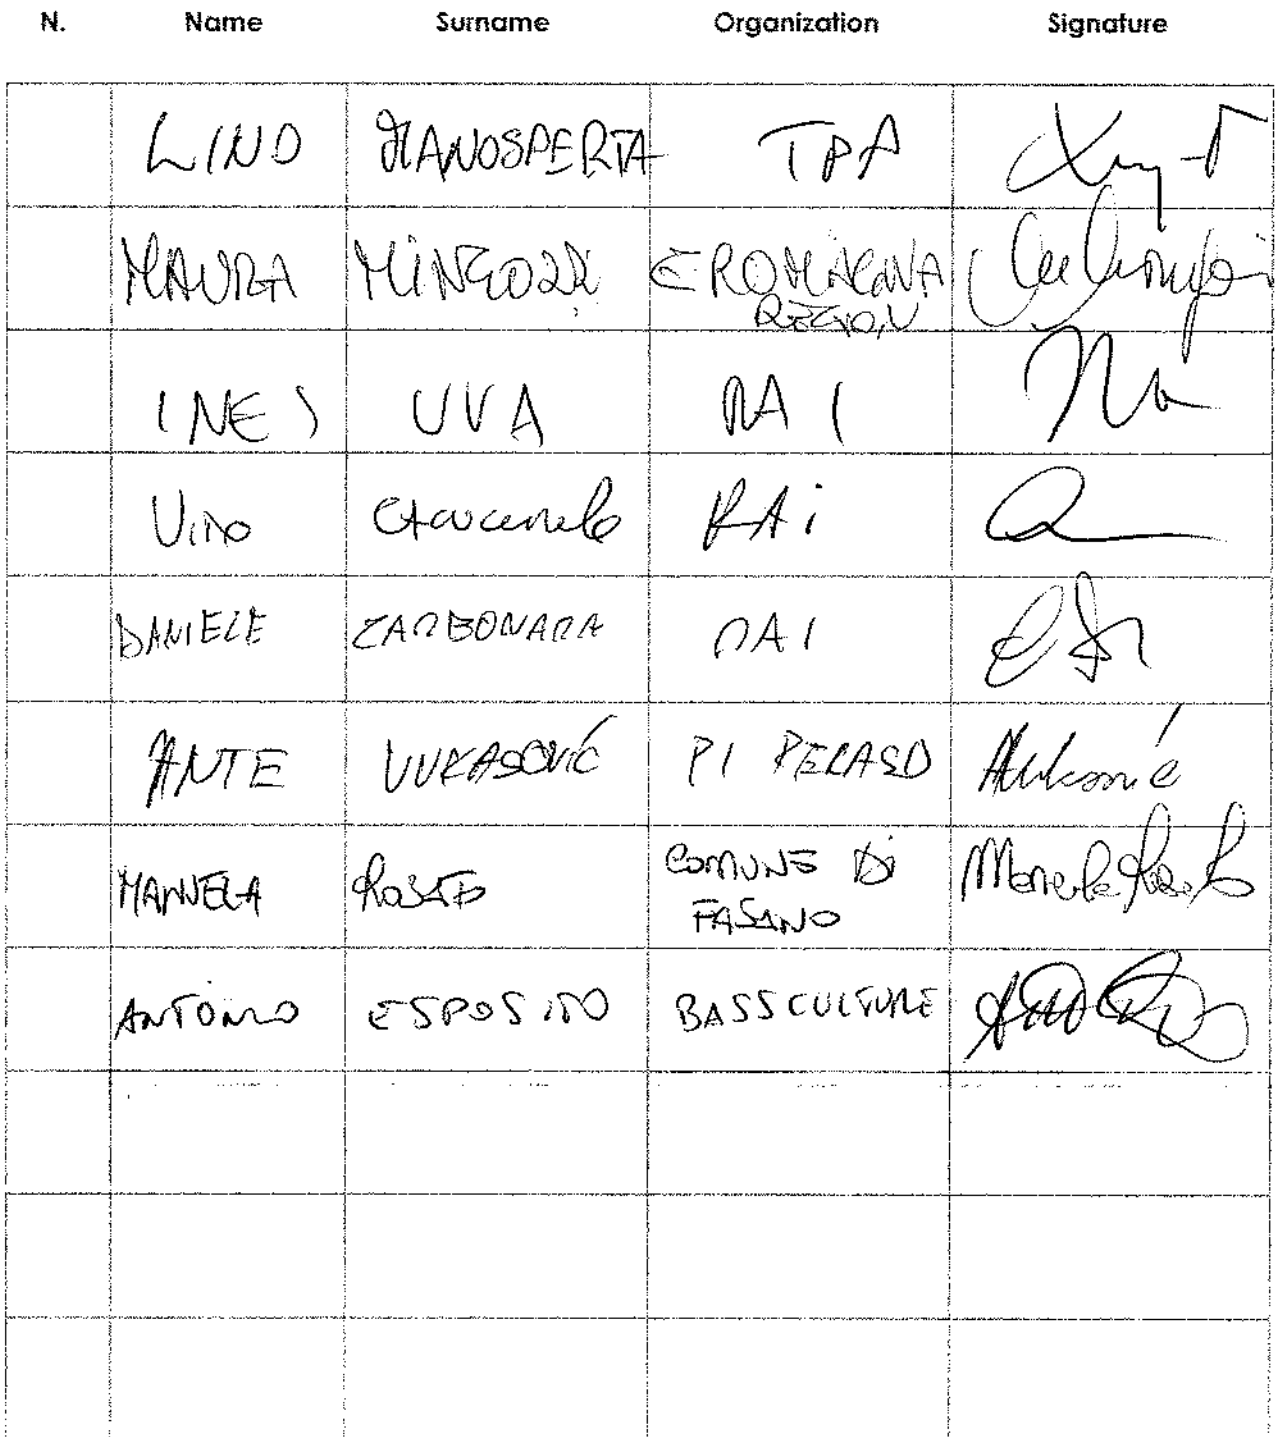 N. Name Surname Organization Signature
LINO MANOSPERTA TPA
MAURA MINGOZZI E ROMAGNA
REGION
INES UVA RAI
VITO RAI
DANIELE CARBONARA RAI
ANTE VUKASOVIĆ PI PERASD
MANUELA ROSATO COMUNE DI
FASANO Manuela Rosato
ANTONIO ESPOSITO BASSCULTURE